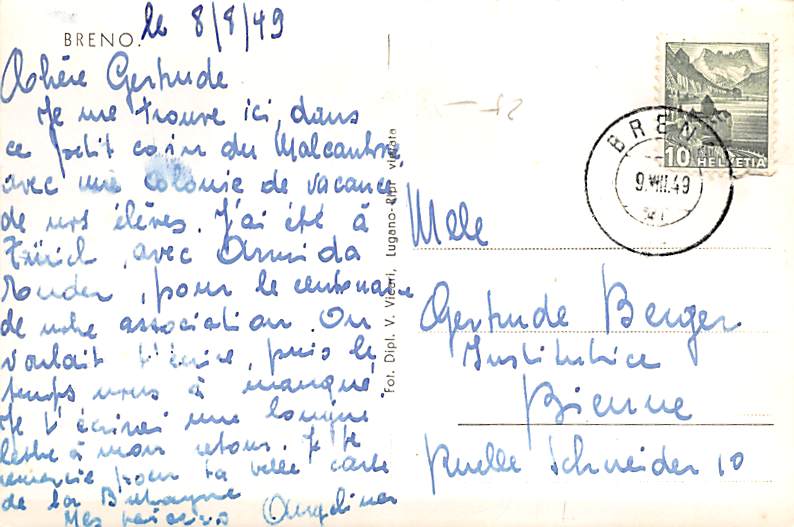 BRENO. le 8/8/49
Chère Gertrude
Je me trouve ici, dans
ce petit coin du Malcantone
avec une colonie de vacances
de nos élèves. J'ai été à
Zürich, avec Armida
, pour le centenaire
de notre association. On
voulait t'écrire, puis le
temps nous a manqué.
Je t'écrirai une longue
lettre à mon retour. Je te
remercie pour ta belle carte
de la Bretagne
Mes Angelina
Fot. Dipl. V. Vicari, Lugano - Ripr. vietata
BRENO
9.VIII.49
10 HELVETIA
Mlle
Gertrude Berger
Institutrice
Bienne
Ruelle Schneider 10